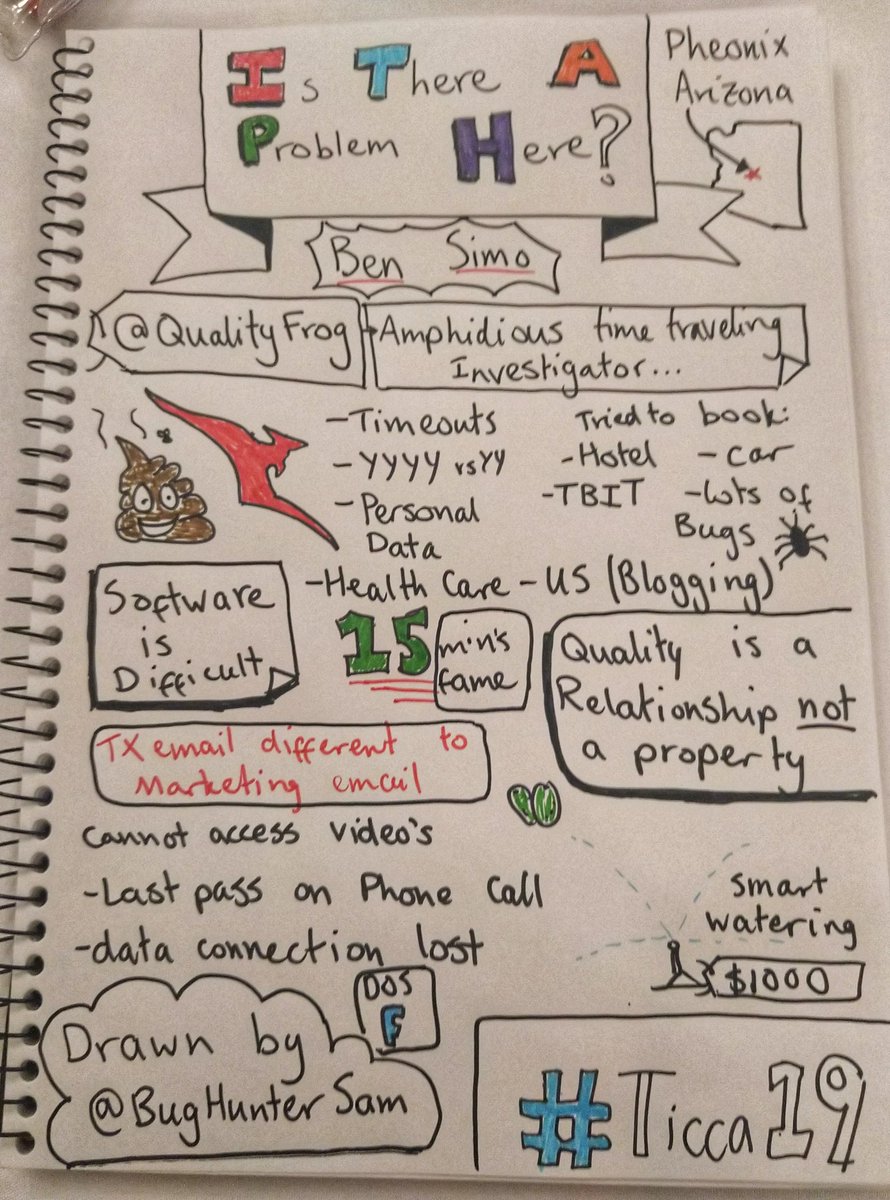 Is There A
Problem Here?
Pheonix
Arizona
Ben Simo
@QualityFrog
Amphidious time traveling
Investigator...
-Timeouts
-YYYY vs YY
-Personal
Data
Tried to book:
-Hotel -Car
-TBIT -lots of
Bugs
-Health Care - US (Blogging)
Software
is
Difficult
15 min's
fame
Quality is a
Relationship not
a property
TX email different to
Marketing email
Cannot access video's
-Last pass on Phone Call
-data connection lost
smart
watering
$1000
DOS
F
Drawn by
@BugHunterSam
#Ticca19